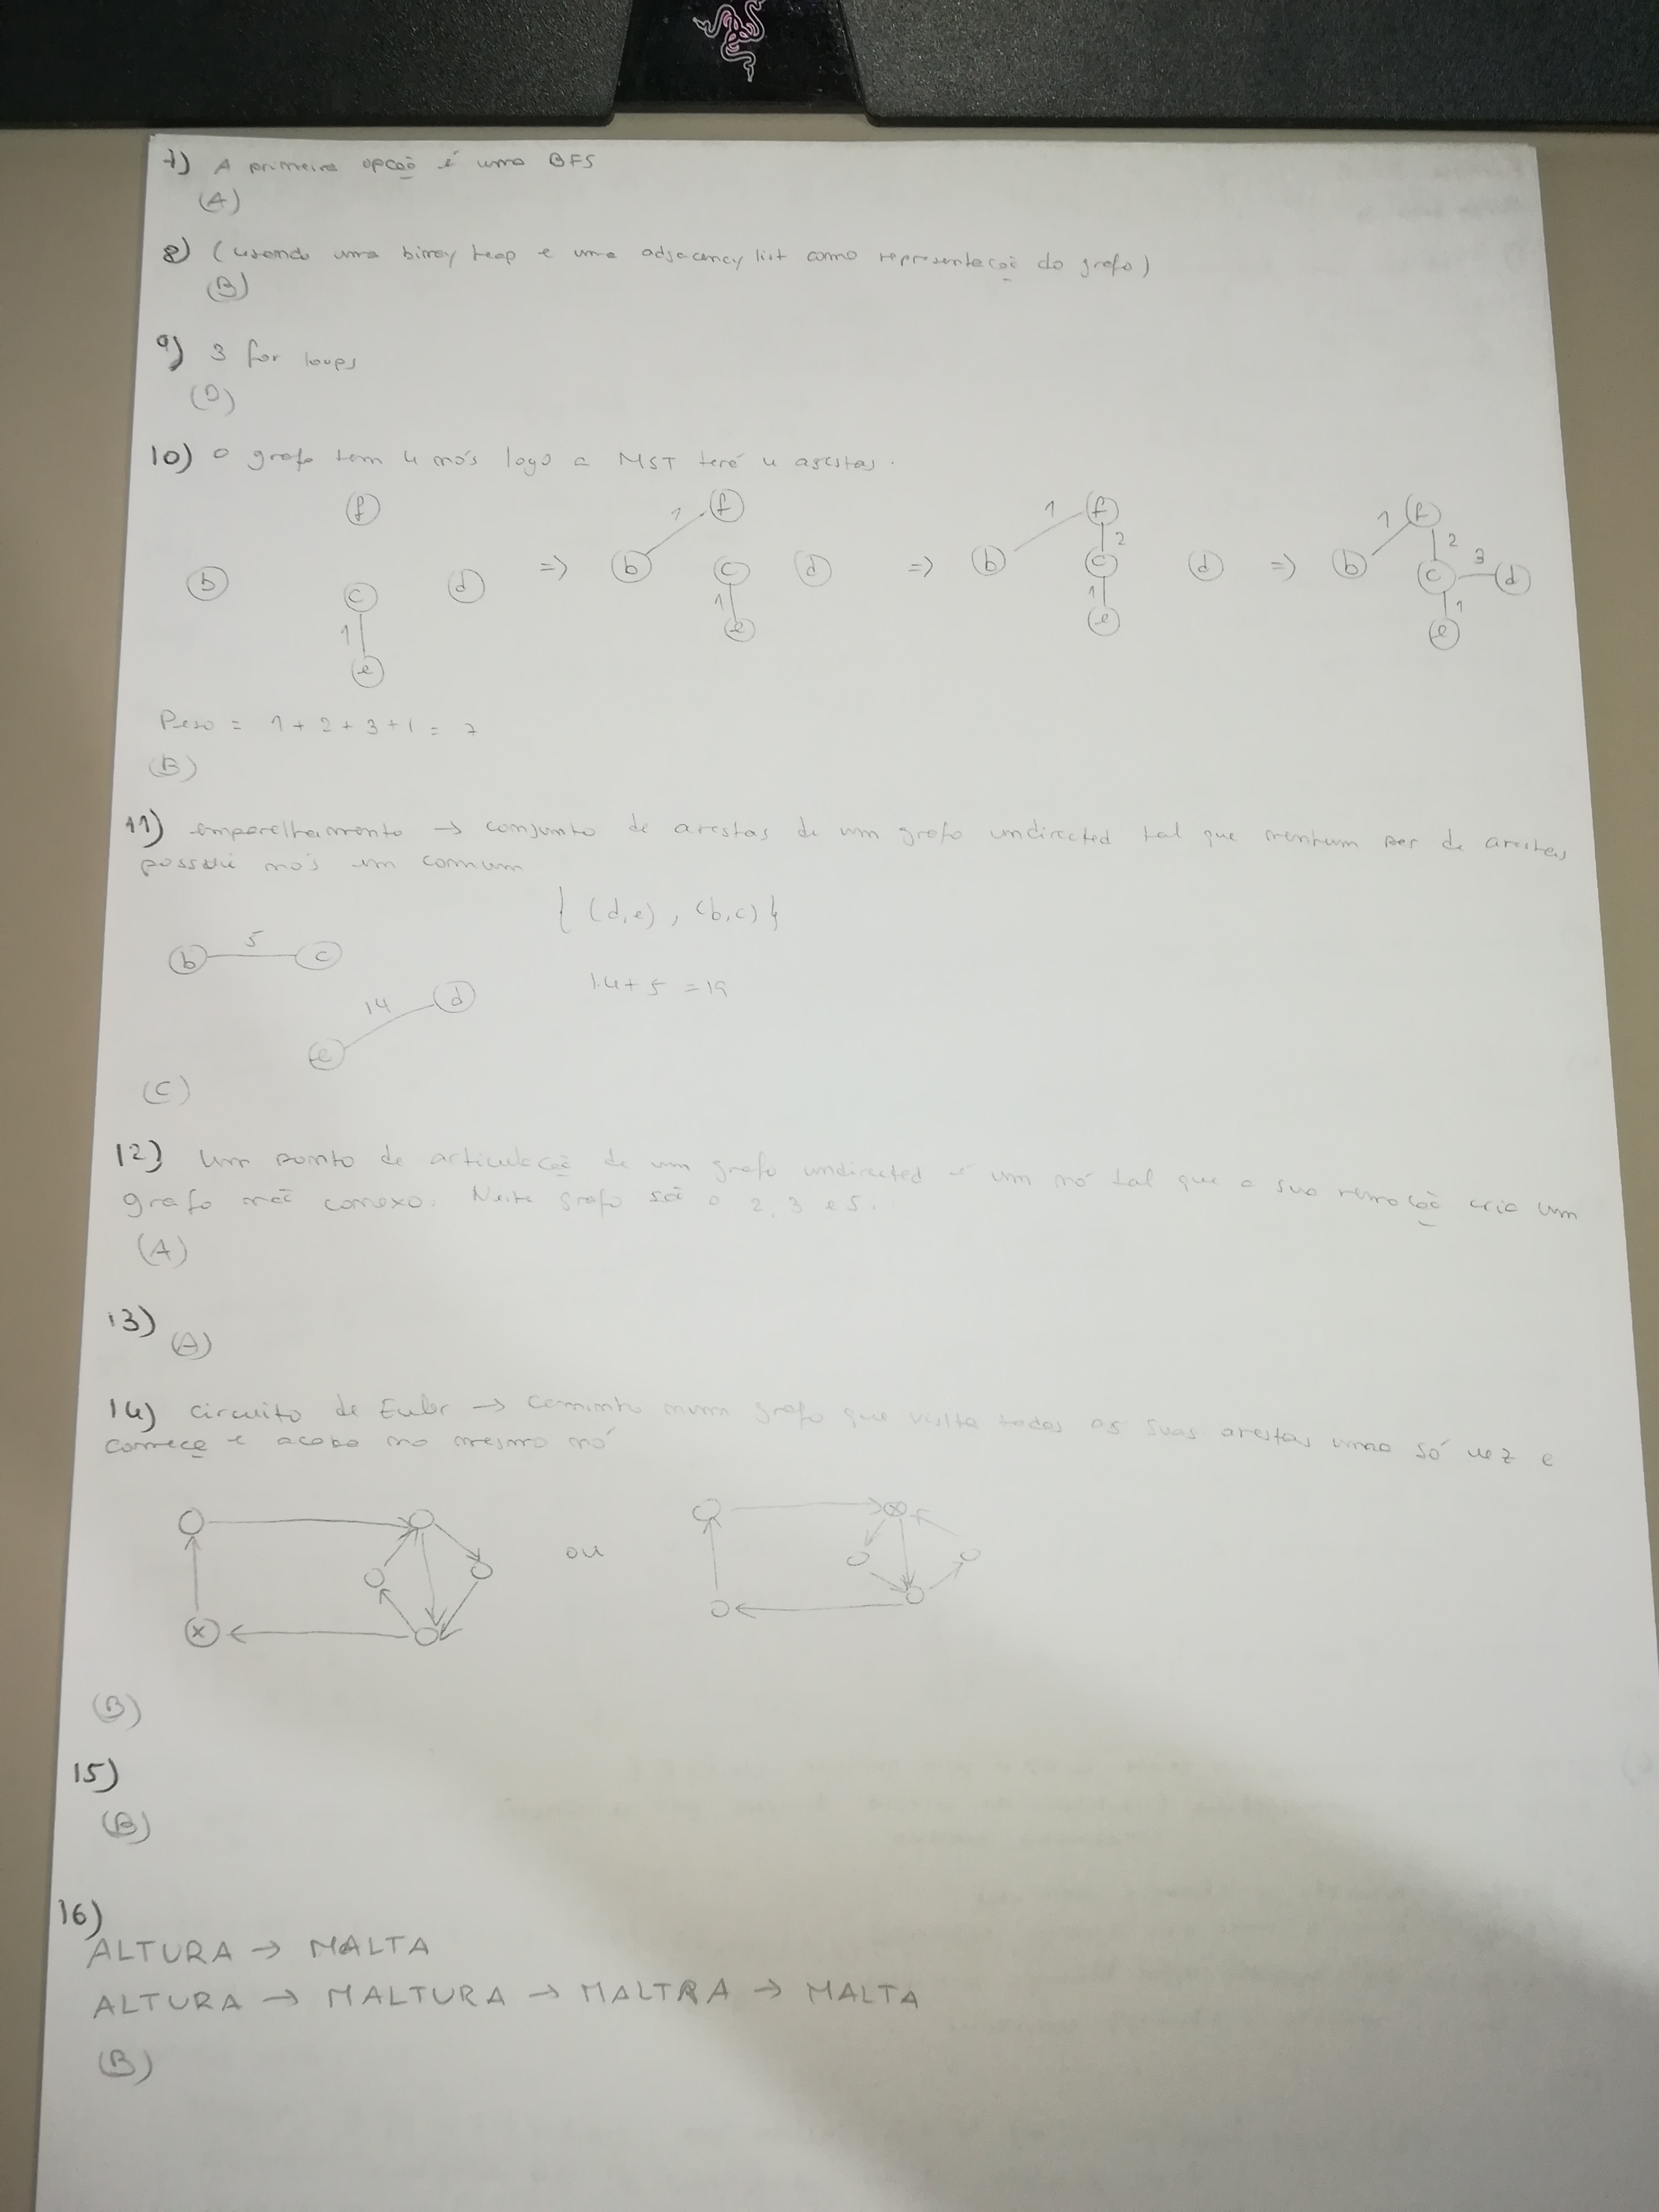 7) A primeira opção é uma BFS
(A)
8) (usando uma binary heap e uma adjacency list como representação do grafo)
(B)
9) 3 for loops
(D)
10) o grafo tem 4 nós logo a MST terá 4 arestas.
f
b
c
d
1
e
=>
1
f
b
c
d
1
e
=>
1
f
2
b
c
d
1
e
=>
1
f
2
3
b
c
d
1
e
Peso = 1 + 2 + 3 + 1 = 7
(B)
11) emparelhamento → conjunto de arestas de um grafo undirected tal que nenhum par de arestas
possui nós em comum
{ (d,e) , (b,c) }
b
5
c
14
d
e
14 + 5 = 19
(C)
12) Um ponto de articulação de um grafo undirected é um nó tal que a sua remoção cria um
grafo não conexo. Neste grafo são o 2, 3 e 5.
(A)
13)
(A)
14) circuito de Euler → caminho num grafo que visita todas as suas arestas uma só vez e
começa e acaba no mesmo nó
x
ou
x
(B)
15)
(B)
16)
ALTURA → MALTA
ALTURA → MALTURA → MALTRA → MALTA
(B)